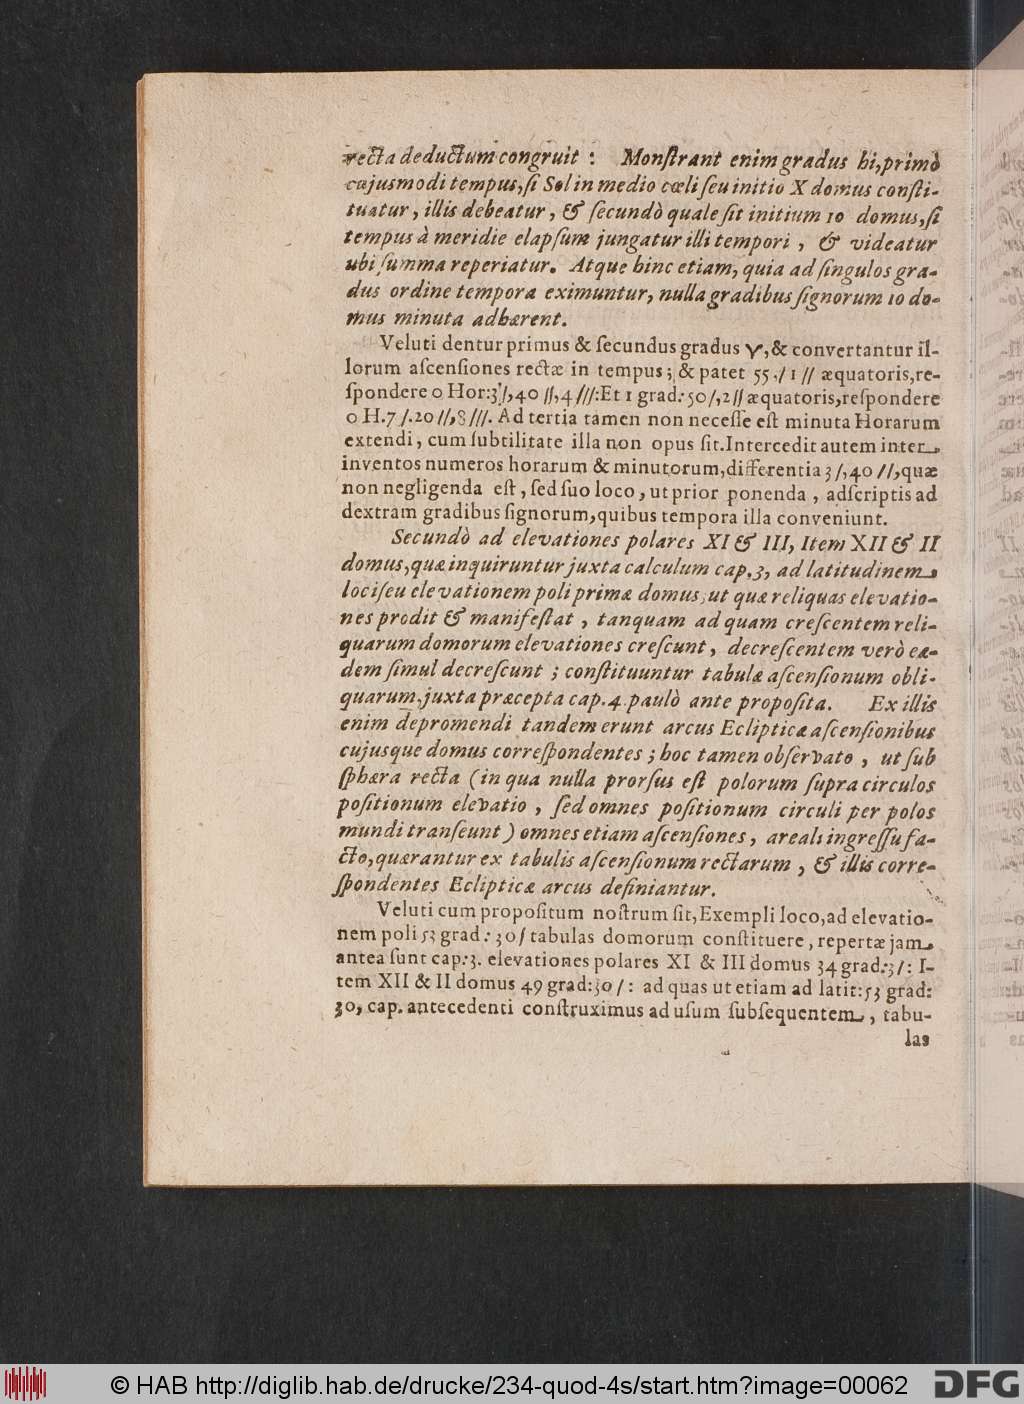 recta deductum congruit : Monſtrant enim gradus hi, primò
cujusmodi tempus, ſi Sol in medio cœli ſeu initio X domus conſti-
tuatur, illis debeatur, & ſecundò quale ſit initium 10 domus, ſi
tempus à meridie elapſum jungatur illi tempori, & videatur
ubi ſumma reperiatur. Atque hinc etiam, quia ad ſingulos gra-
dus ordine tempora eximuntur, nulla gradibus ſignorum 10 do-
mus minuta adhærent.
Veluti dentur primus & ſecundus gradus ♈, & convertantur il-
lorum aſcenſiones rectæ in tempus; & patet 55 ./ 1 // æquatoris, re-
ſpondere 0 Hor: 3/, 40 //, 4 ///: Et 1 grad: 50 /, 2 // æquatoris, reſpondere
0 H. 7 /. 20 //, 8 ///. Ad tertia tamen non neceſſe eſt minuta Horarum
extendi, cum ſubtilitate illa non opus ſit. Intercedit autem inter
inventos numeros horarum & minutorum, differentia 3 /, 40 //, quæ
non negligenda eſt, ſed ſuo loco, ut prior ponenda, adſcriptis ad
dextram gradibus ſignorum, quibus tempora illa conveniunt.
Secundò ad elevationes polares XI & III, Item XII & II
domus, quæ inquiruntur juxta calculum cap. 3, ad latitudinem
loci ſeu elevationem poli primæ domus, ut quæ reliquas elevatio-
nes prodit & manifeſtat, tanquam ad quam creſcentem reli-
quarum domorum elevationes creſcunt, decreſcentem verò eæ-
dem ſimul decreſcunt ; conſtituuntur tabulæ aſcenſionum obli-
quarum, juxta præcepta cap. 4 paulò ante propoſita. Ex illis
enim depromendi tandem erunt arcus Eclipticæ aſcenſionibus
cujusque domus correſpondentes ; hoc tamen obſervato, ut ſub
ſphæra recta (in qua nulla prorſus eſt polorum ſupra circulos
poſitionum elevatio, ſed omnes poſitionum circuli per polos
mundi tranſeunt) omnes etiam aſcenſiones, areali ingreſſu fa-
cto, quærantur ex tabulis aſcenſionum rectarum, & illis corre-
ſpondentes Eclipticæ arcus definiantur.
Veluti cum propoſitum noſtrum ſit, Exempli loco, ad elevatio-
nem poli 53 grad: 30 / tabulas domorum conſtituere, repertæ jam
antea ſunt cap: 3. elevationes polares XI & III domus 34 grad: 3 /: I-
tem XII & II domus 49 grad: 30 /: ad quas ut etiam ad latit: 53 grad:
30, cap. antecedenti conſtruximus ad uſum ſubſequentem, tabu-
las
© HAB http://diglib.hab.de/drucke/234-quod-4s/start.htm?image=00062
DFG